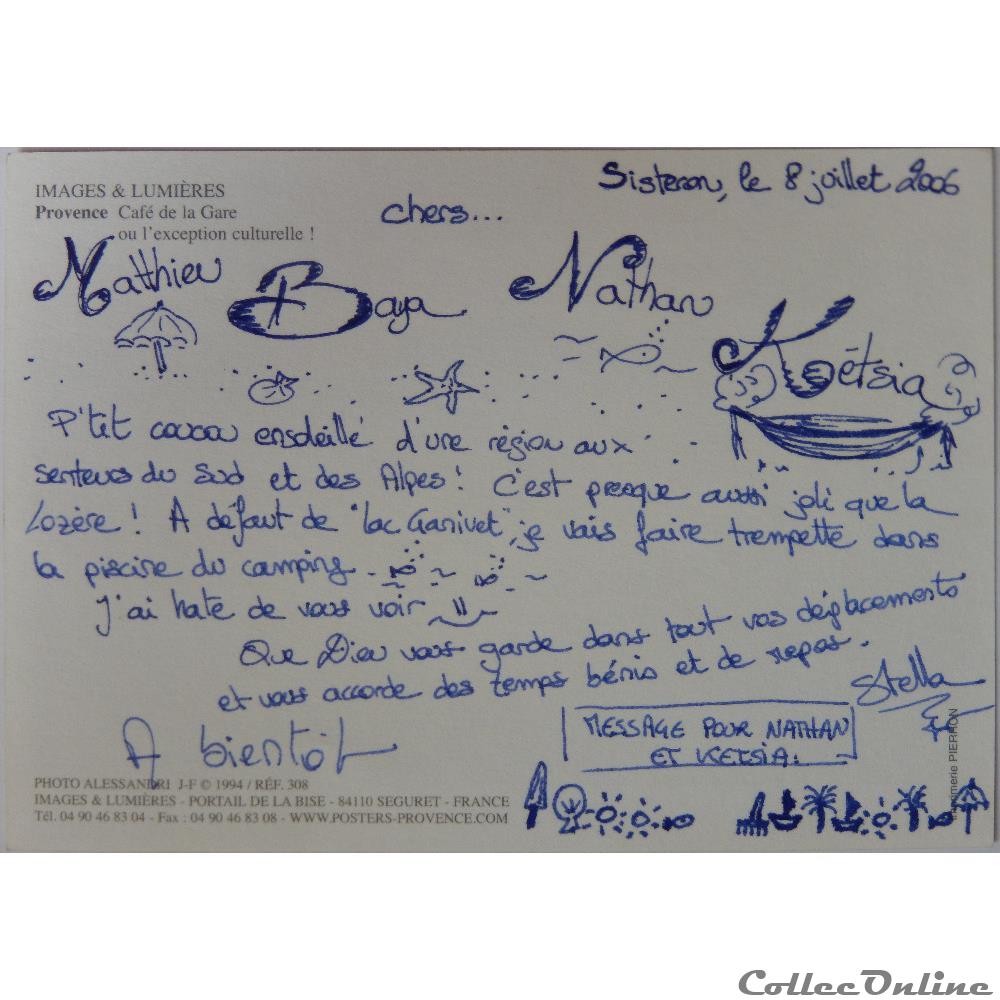 Sisteron, le 8 juillet 2006
IMAGES & LUMIÈRES
Provence Café de la Gare
ou l'exception culturelle !
chers...
Matthieu Baya Nathan Kétsia
P'tit coucou ensoleillé d'une région aux
senteurs du Sud et des Alpes ! C'est presque aussi joli que la
Lozère ! A défaut de "lac Ganivet", je vais faire trempette dans
la piscine du camping.
J'ai hate de vous voir
Que Dieu vous garde dans tout vos déplacements
et vous accorde des temps bénis et de repos.
Stella
A bientôt
MESSAGE POUR NATHAN
ET KETSIA :
PHOTO ALESSANDRI J-F © 1994 / RÉF. 308
IMAGES & LUMIÈRES - PORTAIL DE LA BISE - 84110 SEGURET - FRANCE
Tél. 04 90 46 83 04 - Fax : 04 90 46 83 08 - WWW.POSTERS-PROVENCE.COM
Imprimerie PIERRON
CollecOnline